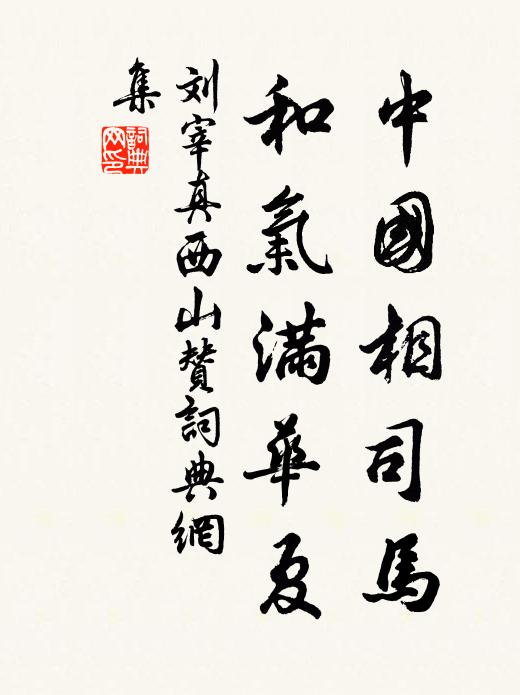 中國相司馬
和氣滿華夏
刘宰真西山赞詞典網
集
詞典網印